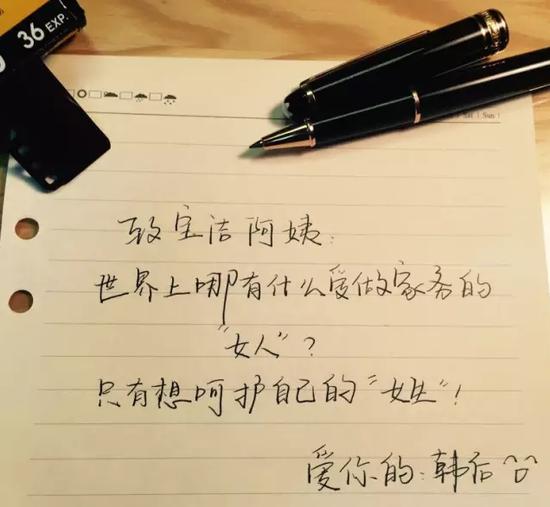 36 EXP.
Sat Sun
致宝洁阿姨:
世界上哪有什么爱做家务的
“女人”?
只有想呵护自己的“女生”!
爱你的:韩后